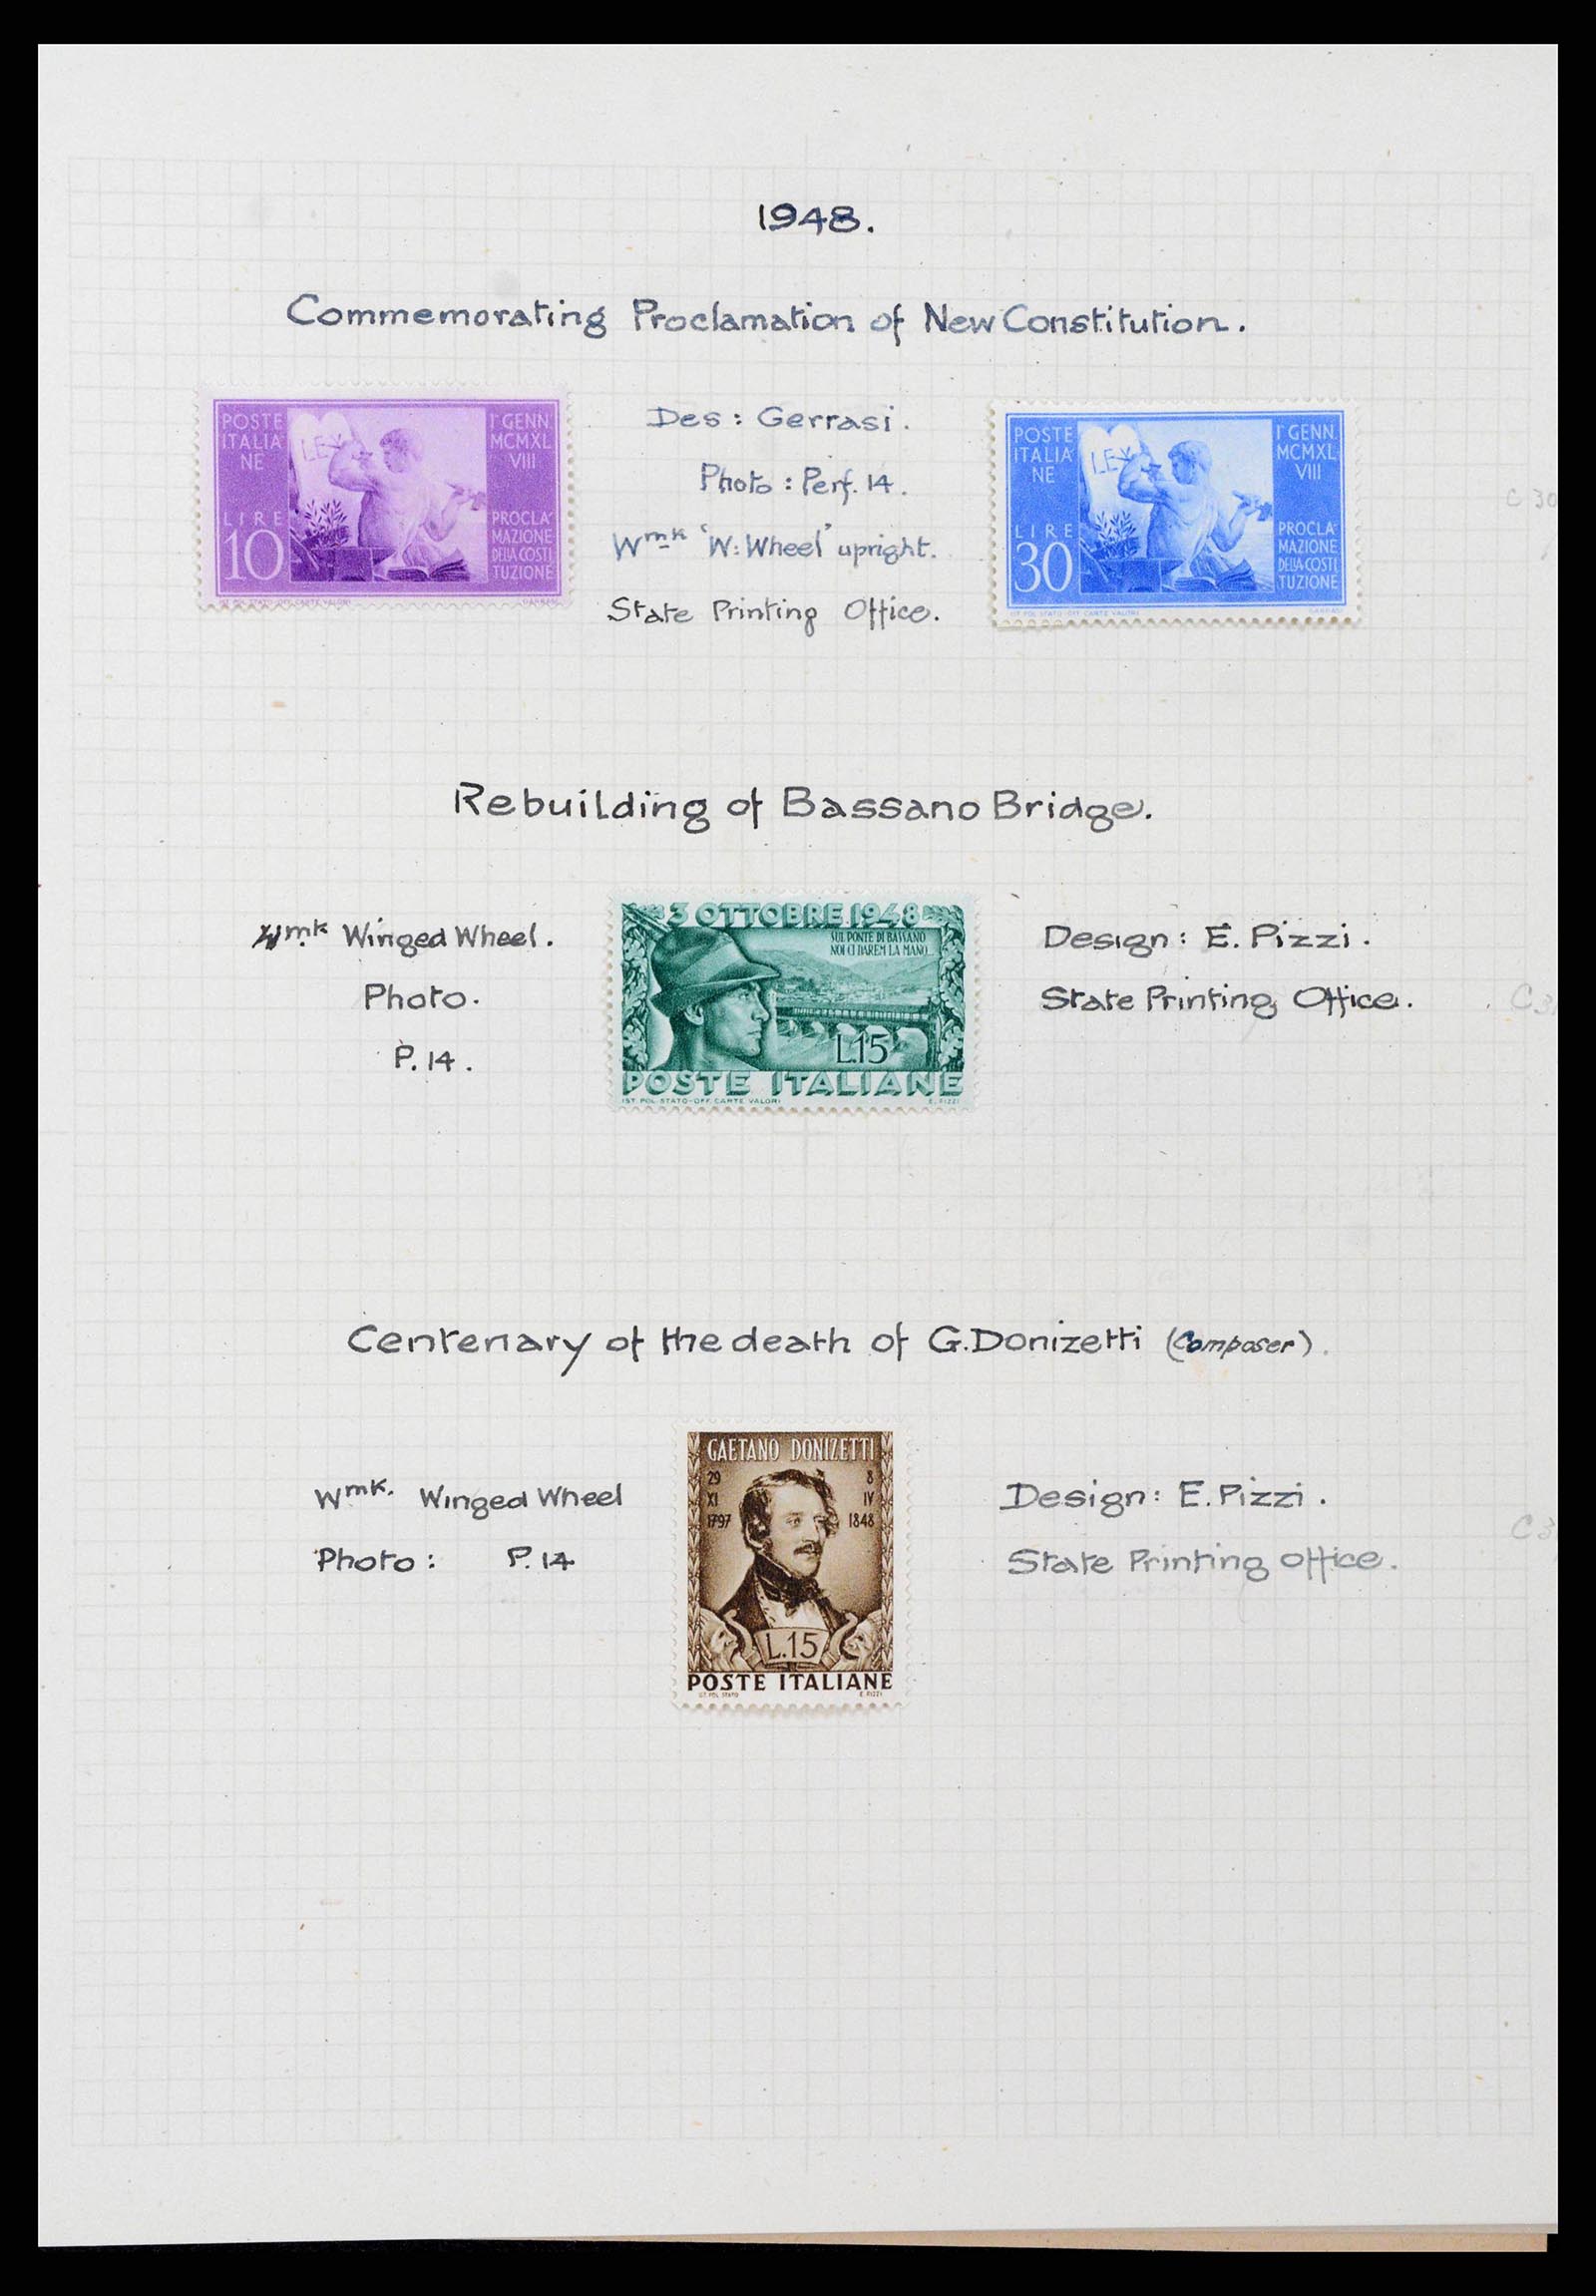 1948.
Commemorating Proclamation of New Constitution.
POSTE
ITALIA
NE
LIRE
10
LEX
Iº GENN.
MCMXL
VIII
PROCLA
MAZIONE
DELLA COSTI
TUZIONE
IST. POL. STATO-OFF. CARTE VALORI
Des: Gerrasi.
Photo: Perf. 14.
Wmk 'W: Wheel' upright.
State Printing Office.
POSTE
ITALIA
NE
LIRE
30
LEX
Iº GENN.
MCMXL
VIII
PROCLA
MAZIONE
DELLA COSTI
TUZIONE
IST. POL. STATO-OFF. CARTE VALORI
C 30
Rebuilding of Bassano Bridge.
Wmk Winged Wheel.
Photo.
P. 14.
3 OTTOBRE 1948
SUL PONTE DI BASSANO
NOI CI DAREM LA MANO...
L.15
POSTE ITALIANE
IST. POL. STATO-OFF. CARTE VALORI E. PIZZI
Design: E. Pizzi.
State Printing Office.
Centenary of the death of G. Donizetti (Composer).
Wmk. Winged Wheel
Photo: P. 14
GAETANO DONIZETTI
29 8
XI IV
1797 1848
L.15
POSTE ITALIANE
IST. POL. STATO E. PIZZI
Design: E. Pizzi.
State Printing Office.